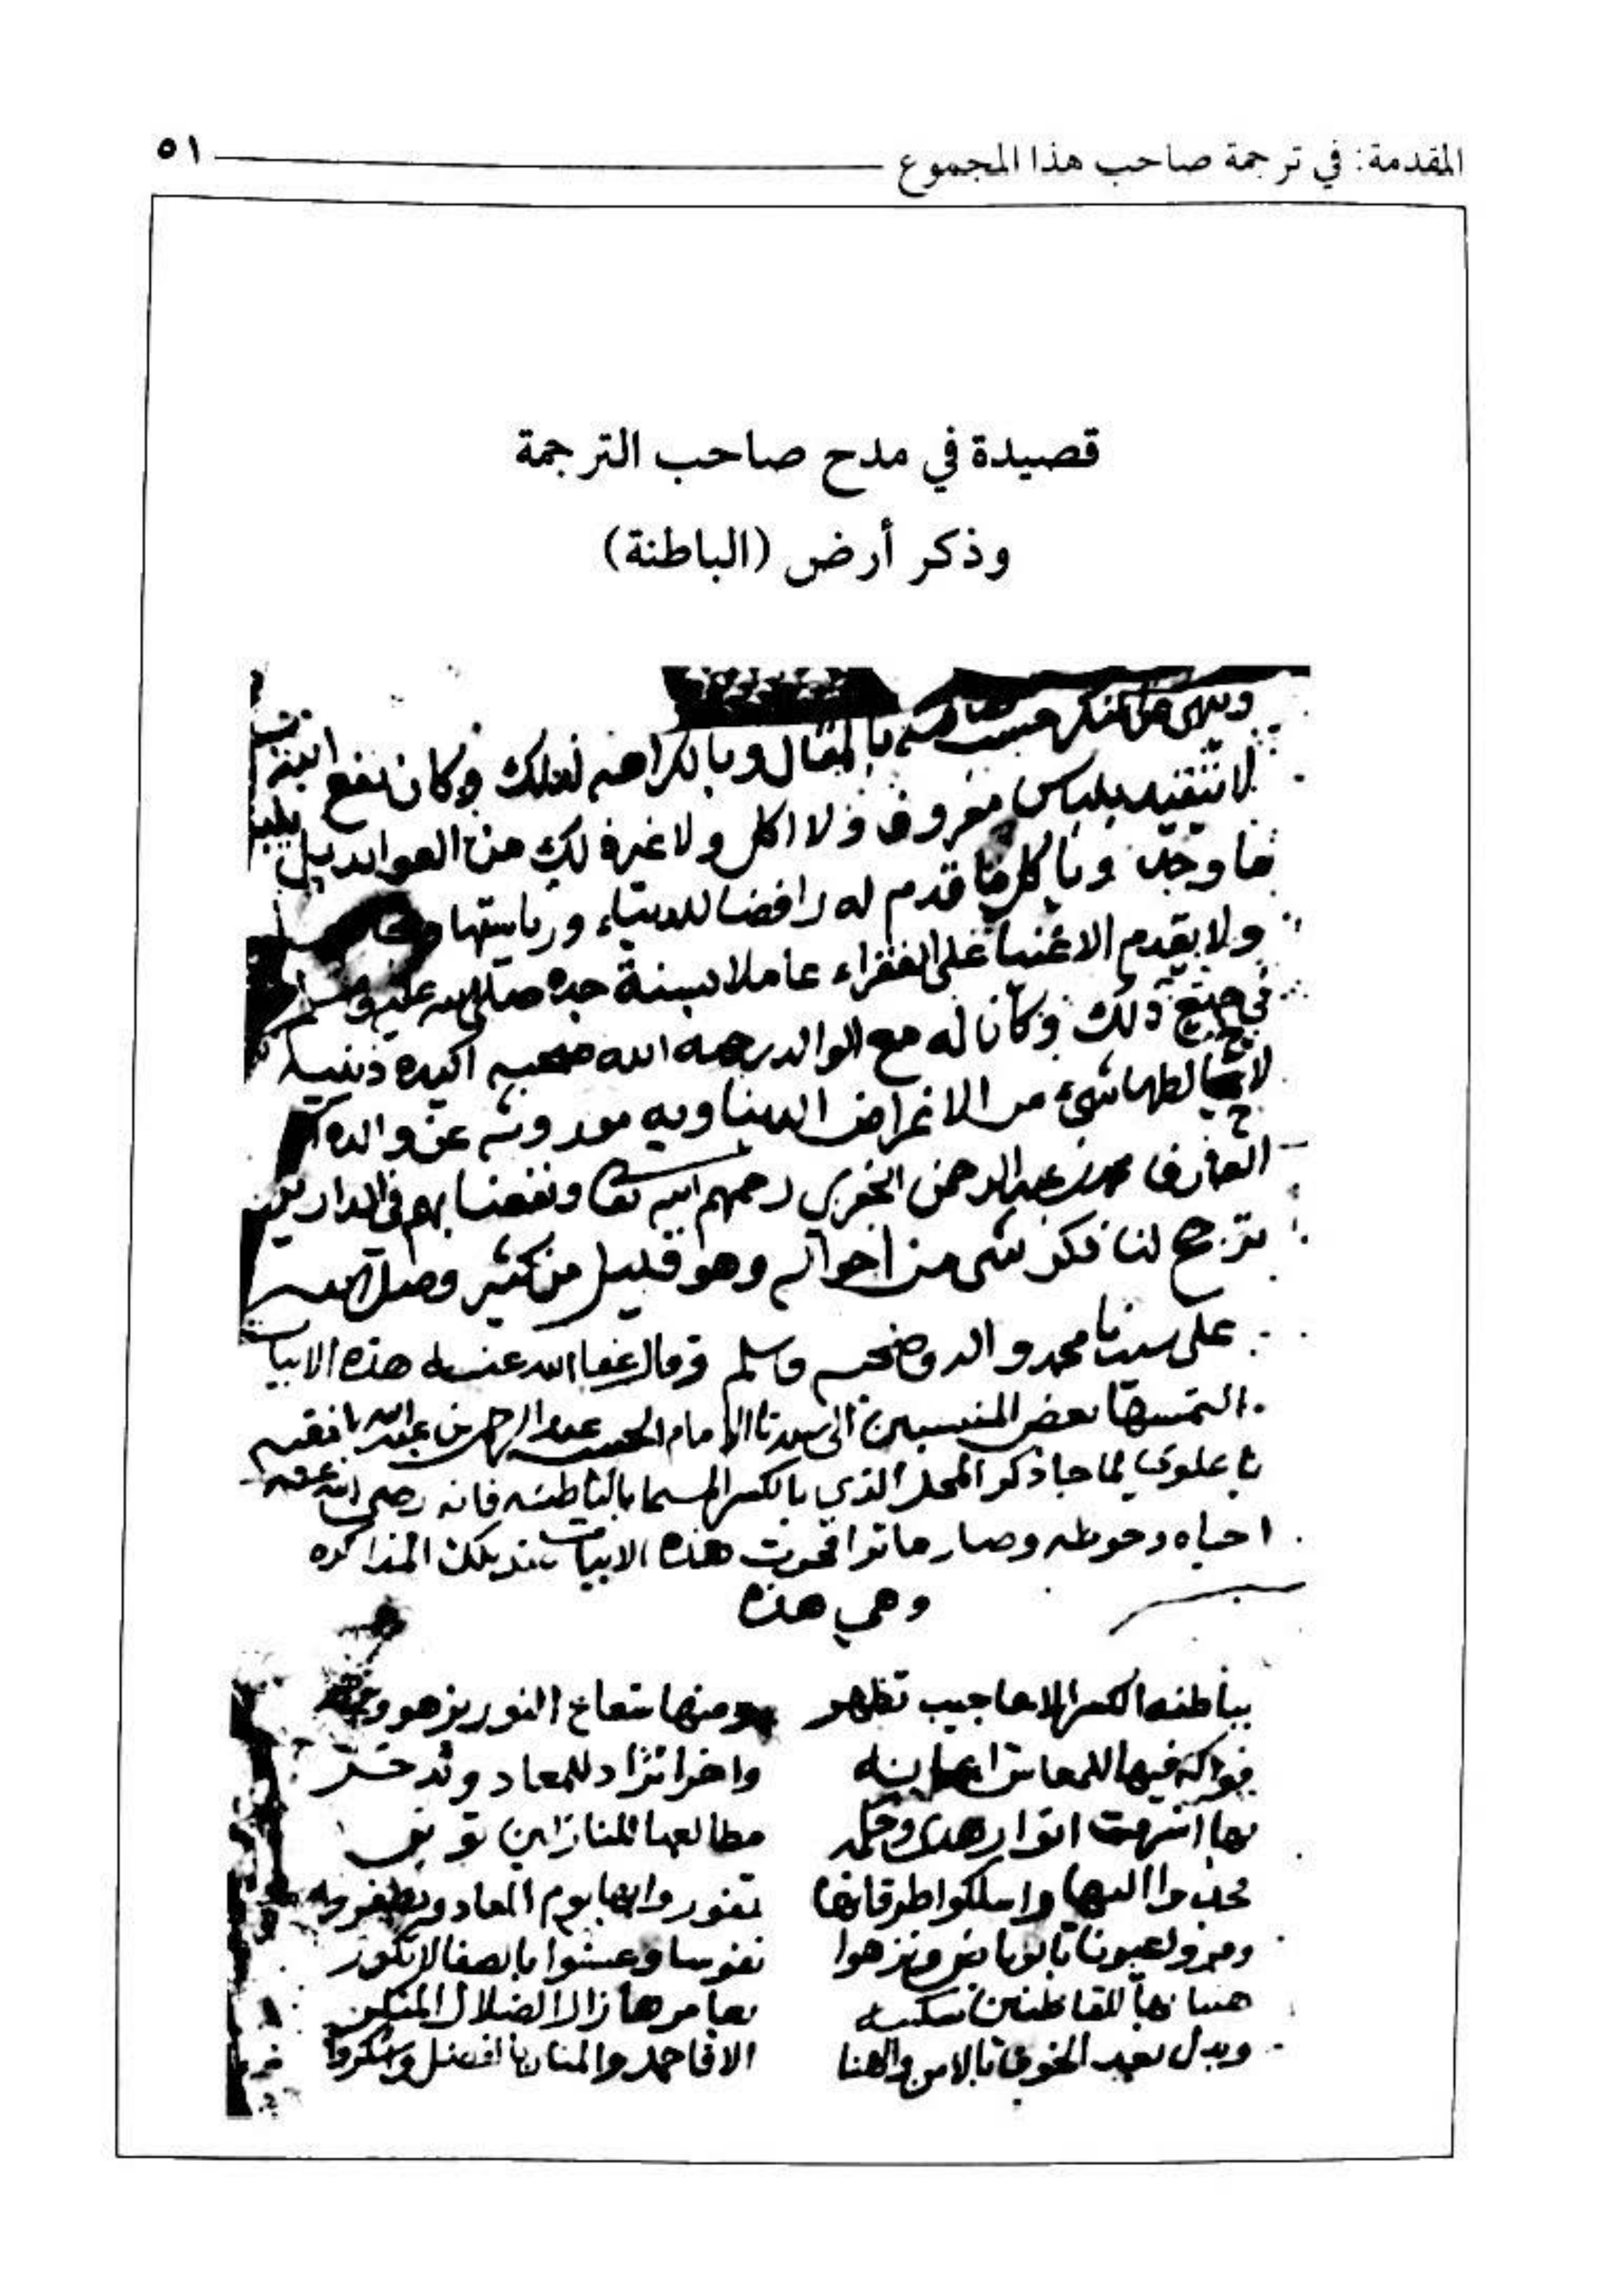 المقدمة: في ترجمة صاحب هذا المجموع ٥١
قصيدة في مدح صاحب الترجمة
وذكر أرض (الباطنة)
وينهى عن المنكر بالمقال وبالكراهه لذلك وكان نفع
لا يتقيد بلباس معروف ولا اكل ولا غير ذلك من العوايد بل يلبس
ما وجد وياكل ما قدم له رافضا للدنيا ورياستها
ولا يقدم الاغنيا على الفقراء عاملا بسنة جده صلى الله عليه وسلم
في جميع ذلك وكان له مع الوالد رحمه الله صحبه اكيده دينيه
لا يخالطها شيء من الاغراض الدنياويه موروثه عن والده
العارف محمد بن عبد الرحمن الجفري رحمهم الله تعالى ونفعنا بهم في الدارين
ترجح لنا ذكر شي من احواله وهو قليل من كثير وصلى الله
على سيدنا محمد واله وصحبه وسلم وقال عفا الله عنه هذه الابيات
التمسها بعض المنتسبين الى سيدنا الامام الحبيب عبد الرحمن بن عبد الله بافقيه
باعلوي لما جا ذكر المحل الذي بالكسر المسما بالباطنه فانه رضي الله عنه
احياه وحوطه وصار ماثرا فجرت هذه الابيات بتلك المذاكره
وهي هذه
بباطنه الكسر الاعاجيب تظهر ومنها شعاع النور يزهو
فواكه فيها للمعاش واخرا تزاد للمعاد وتدخر
بها اشرقت انوار هدي وحكمه مطالعها للنازلين
واسلكوا طرقاتها تفوزوا بها يوم المعاد
نفوسا وعيشوا بالصفا لا تكدر
هنيا بها للقاطنين سكينه بعامرها زال الضلال المنكر
وبدل بعد الخوف بالامن والهنا الا فاحمدوا المنان بالفضل واشكروا